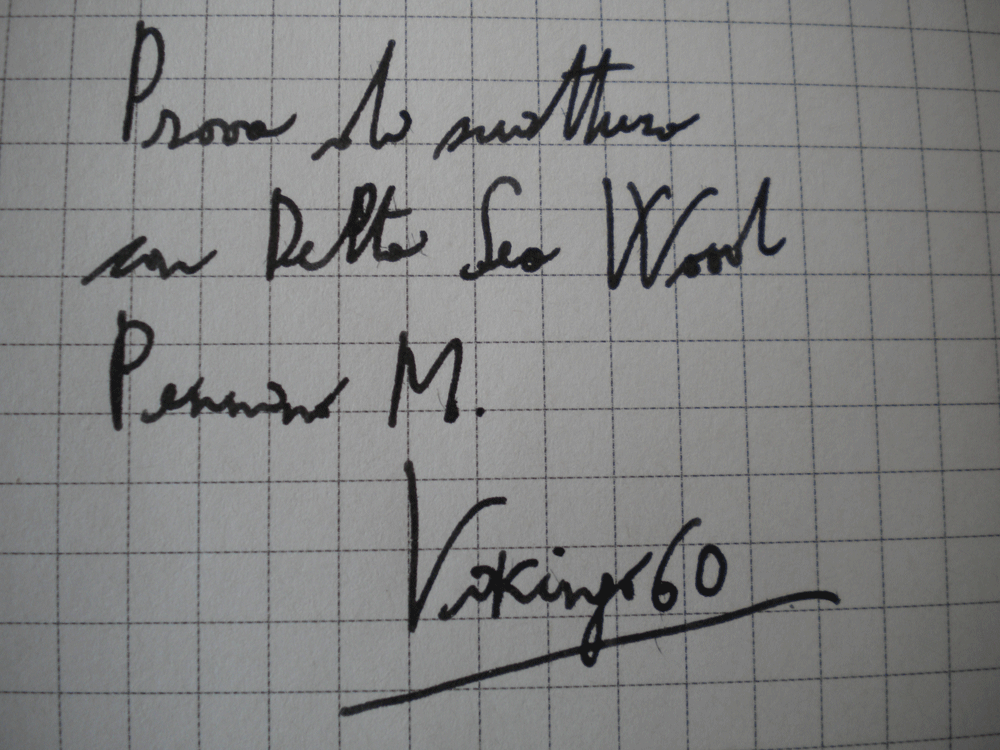 Prova di scrittura
con Delta Sea Wood
Pennino M.
Vikingo60